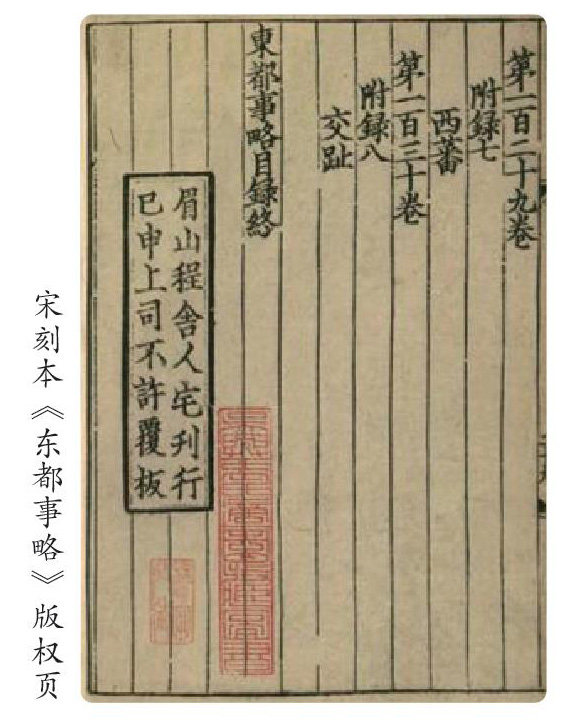 第一百二十九卷
附録七
西蕃
第一百三十卷
附録八
交趾
東都事略目録終
眉山程舍人宅刊行
已申上司不許覆板
宋刻本《东都事略》版权页